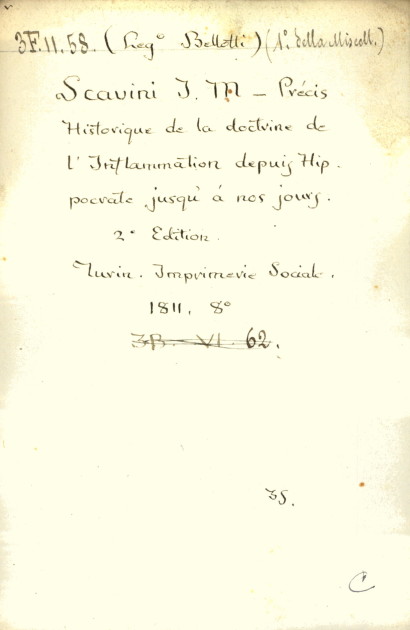 3F.11.58. (Leg° Bellotti) (1° della Miscell.)
Scavini J. M — Précis
Historique de la doctrine de
l'Inflammation depuis Hip-
pocrate jusqu' à nos jours.
2° Edition.
Turin. Imprimerie Sociale.
1811. 8°
3B. VI. 62.
35.
C